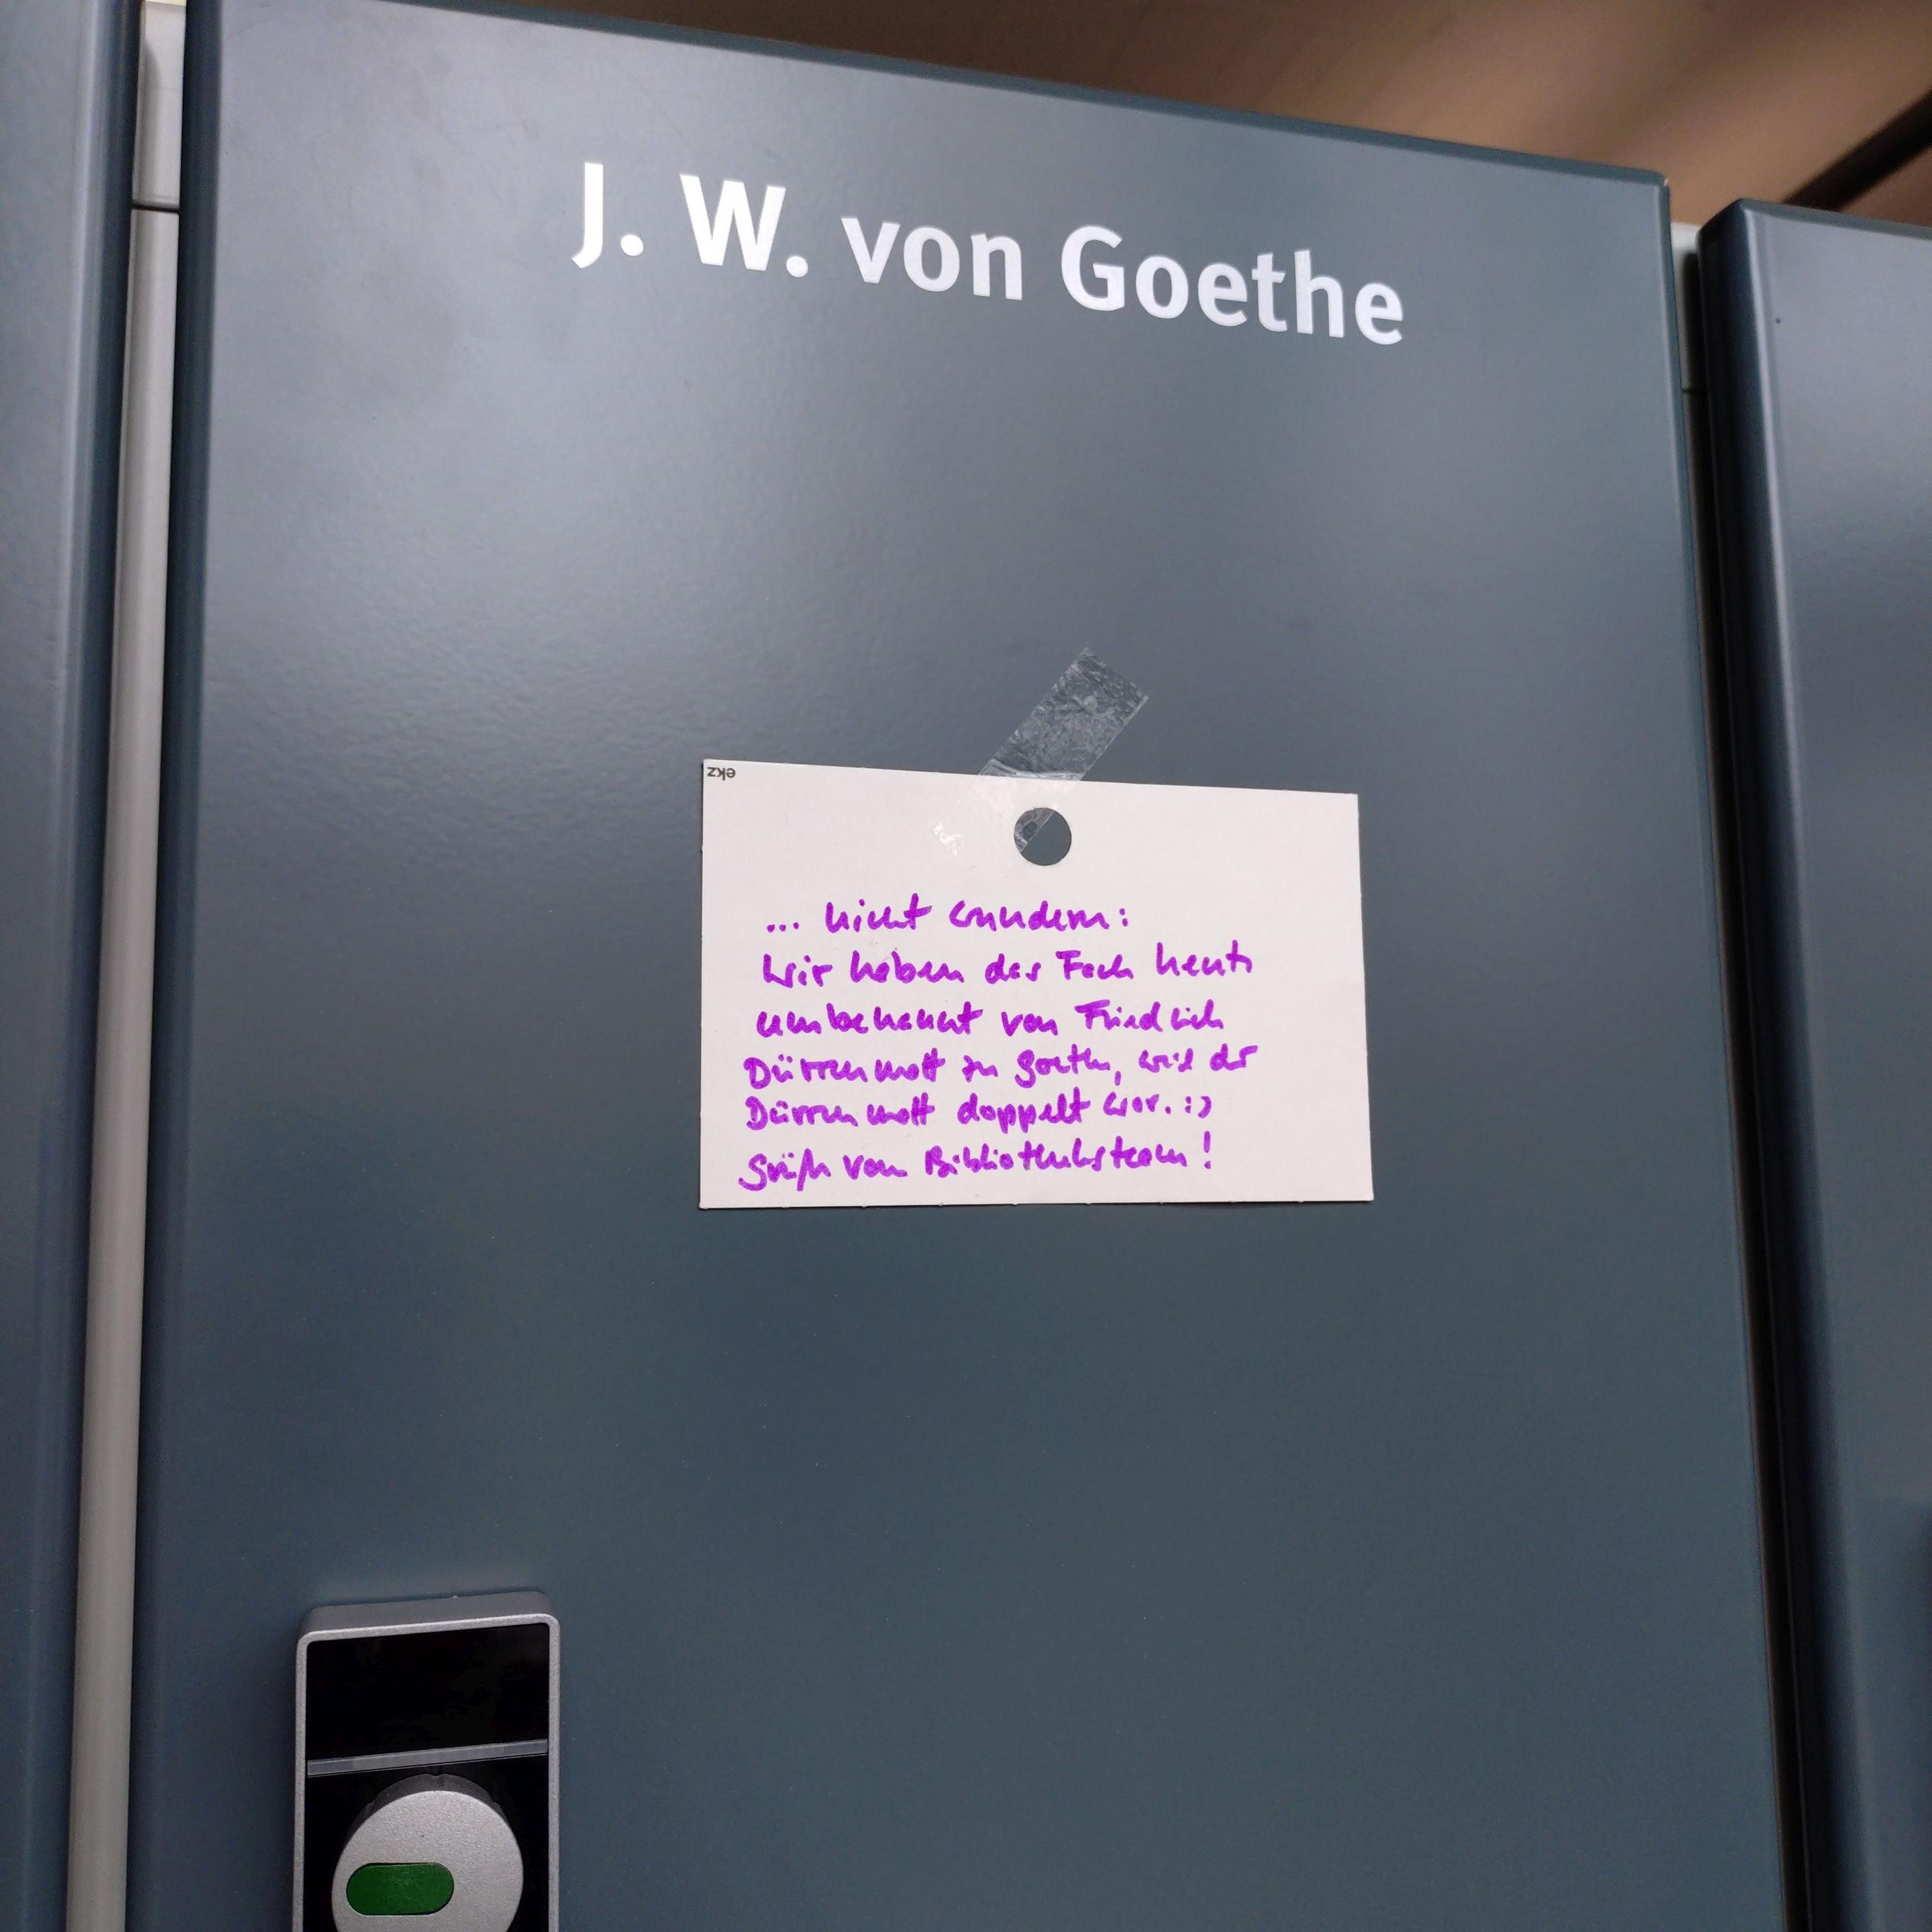 J. W. von Goethe
ekz
... nicht wundern:
Wir haben das Fach heute
umbenannt von Friedrich
Dürrenmatt zu Goethe, weil der
Dürrenmatt doppelt war. :)
Grüße vom Bibliotheksteam!